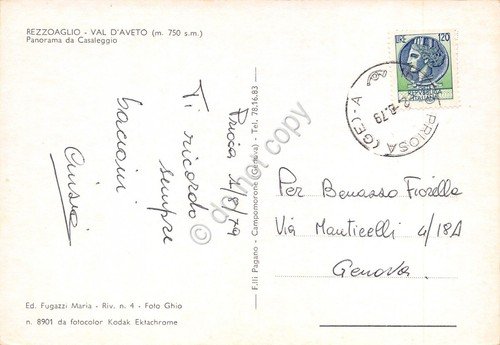 REZZOAGLIO - VAL D'AVETO (m. 750 s.m.)
Panorama da Casaleggio
LIRE 120
REPUBBLICA
ITALIANA
PRIOSA (GE) - A
2-8.79
Priosa 1/8/79
Ti ricordo
sempre
bacioni
F.lli Pagano - Campomorone (Genova) - Tel. 78.16.83
do not copy
Per Benasso Fiorella
Via Monticelli 4/18A
Genova.
Ed. Fugazzi Maria - Riv. n. 4 - Foto Ghio
n. 8901 da fotocolor Kodak Ektachrome